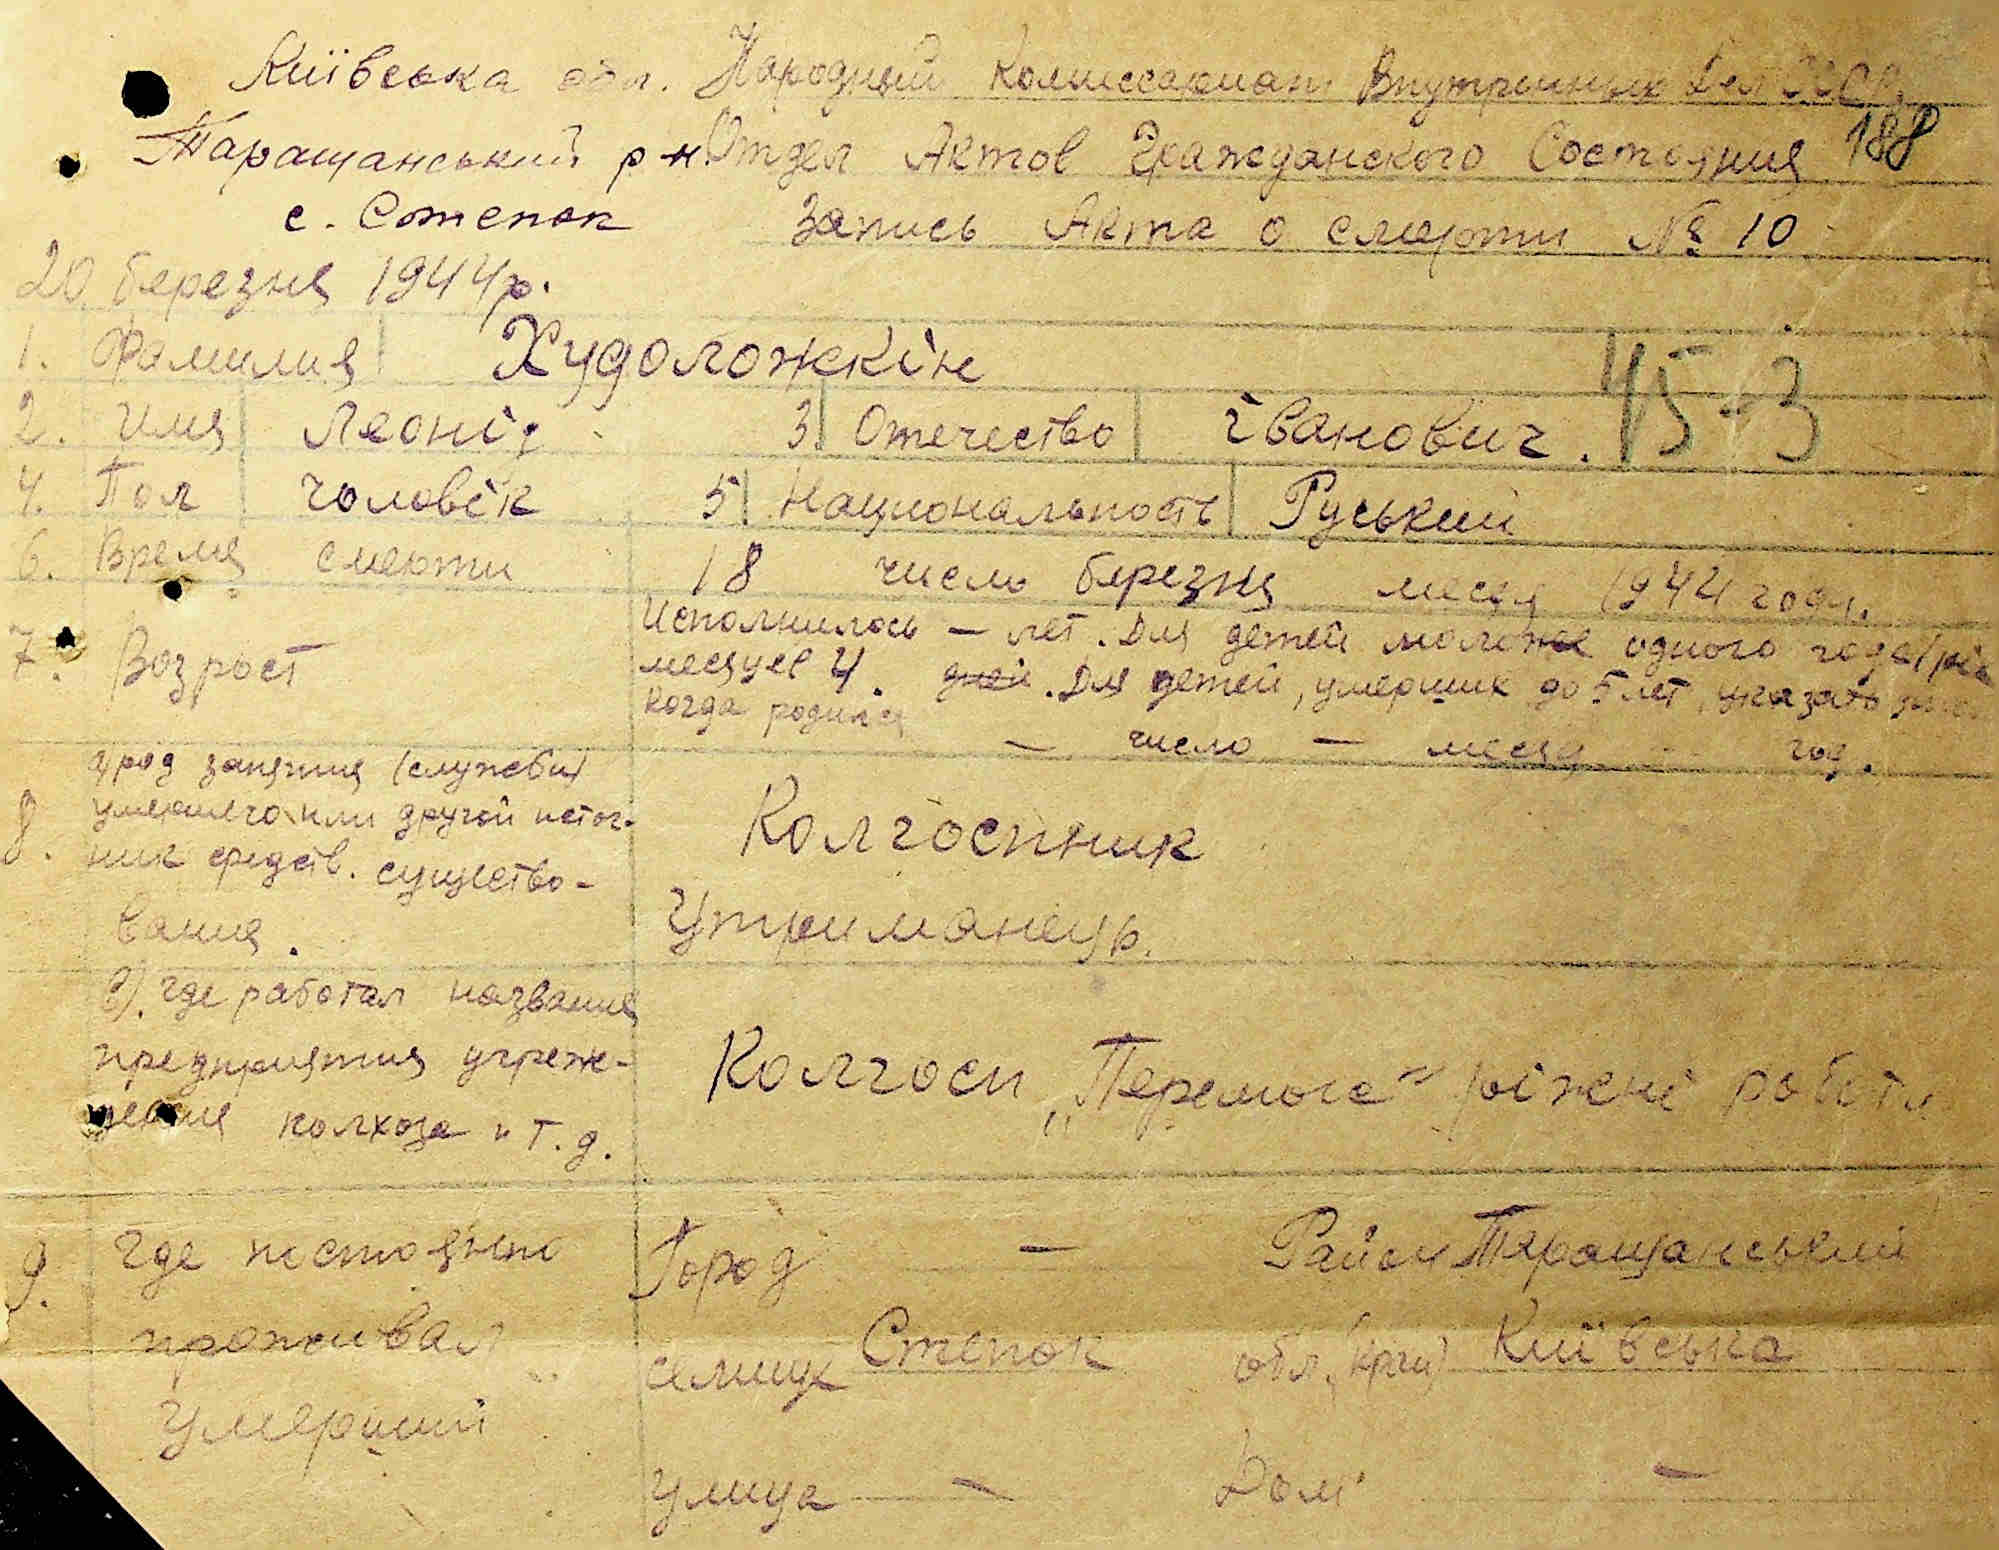 Київська обл. Народный Комиссариат Внутренных Дел СССР
Таращанський р-н. Отдел Актов Гражданского Состояния 188
с. Степок Запись Акта о смерти № 10
20 березня 1944р.
1. Фамилия Худоложкін
2. Имя Леонід 3. Отечество іванович. 45-3
4. Пол чоловік 5 Национальность Руський
6. Время смерти 18 число березня месяц 1944 года.
7. Возраст Исполнилось — лет. Для детей моложе одного года
месяцев 4. дней. Для детей, умерших до 5 лет, указать
когда родился
— число — месяц — год.
8. а) род занятия (службы)
умершего или другой источ-
ник средств. существо-
вания.
Колгоспник
Утриманець.
в). где работал название
предприятия учреж-
дения колхоза и т.д.
Колгосп „Перемога" ріжні роботи
9. где постоянно
проживал
умерший
Город — Район Таращанський
селище Степок обл. (край) Київська
улица — Дом —